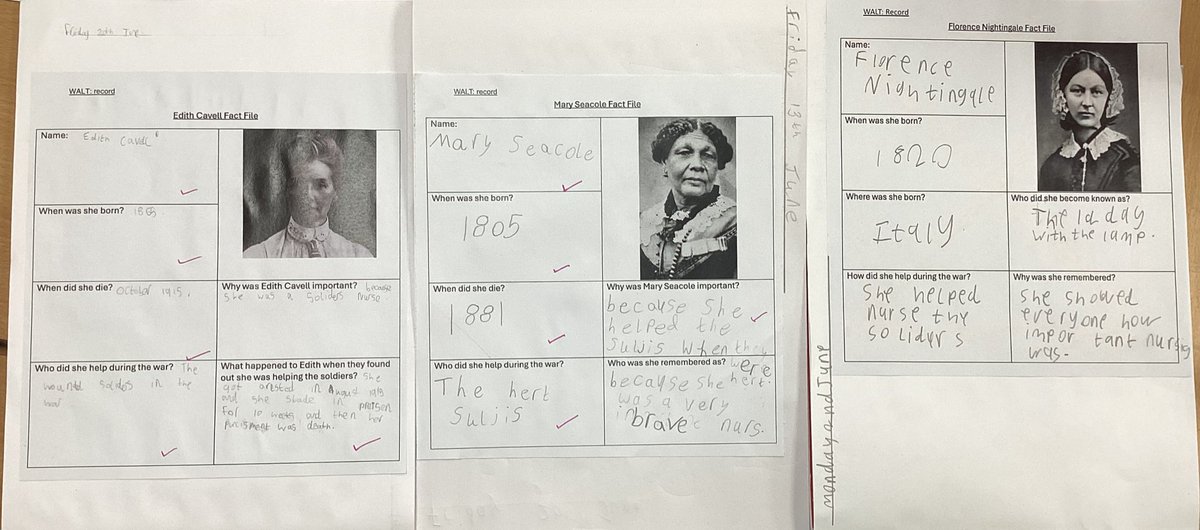 Friday 20th Jun
WALT: record
Edith Cavell Fact File
Name: Edith Cavell
When was she born? 1865
When did she die? October 1915.
Why was Edith Cavell important? because
she was a soliders nurse
Who did she help during the war? The
wound solides in the
war
What happened to Edith when they found
out she was helping the soldiers? She
got arested in August 1915
and she stade in prisgen
For 10 weeks and then her
was death.
Friday 13th June
WALT: record
Mary Seacole Fact File
Name:
Mary Seacole
When was she born?
1805
When did she die?
1881
Why was Mary Seacole important?
because she
helped the
suljis when they
were
hert.
Who did she help during the war?
The hert
Suljis
Who was she remembered as?
because she
was a very
brave nurs.
monday 2nd June
WALT: Record
Florence Nightingale Fact File
Name:
Florence
Nightingale
When was she born?
1820
Where was she born?
Italy
Who did she become known as?
The la day
with the lamp.
How did she help during the war?
She helped
nurse the
solidyrs
Why was she remembered?
She showed
everyone how
impor tant nursing
was.